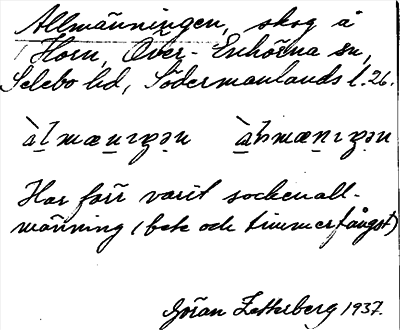 Allmänningen, skog å
Horn, Över-Enhörna sn,
Selebo hd, Södermanlands l. 26.
Har förr varit sockenall-
männing (bete och timmerfångst)
Göran Zetterberg 1937.